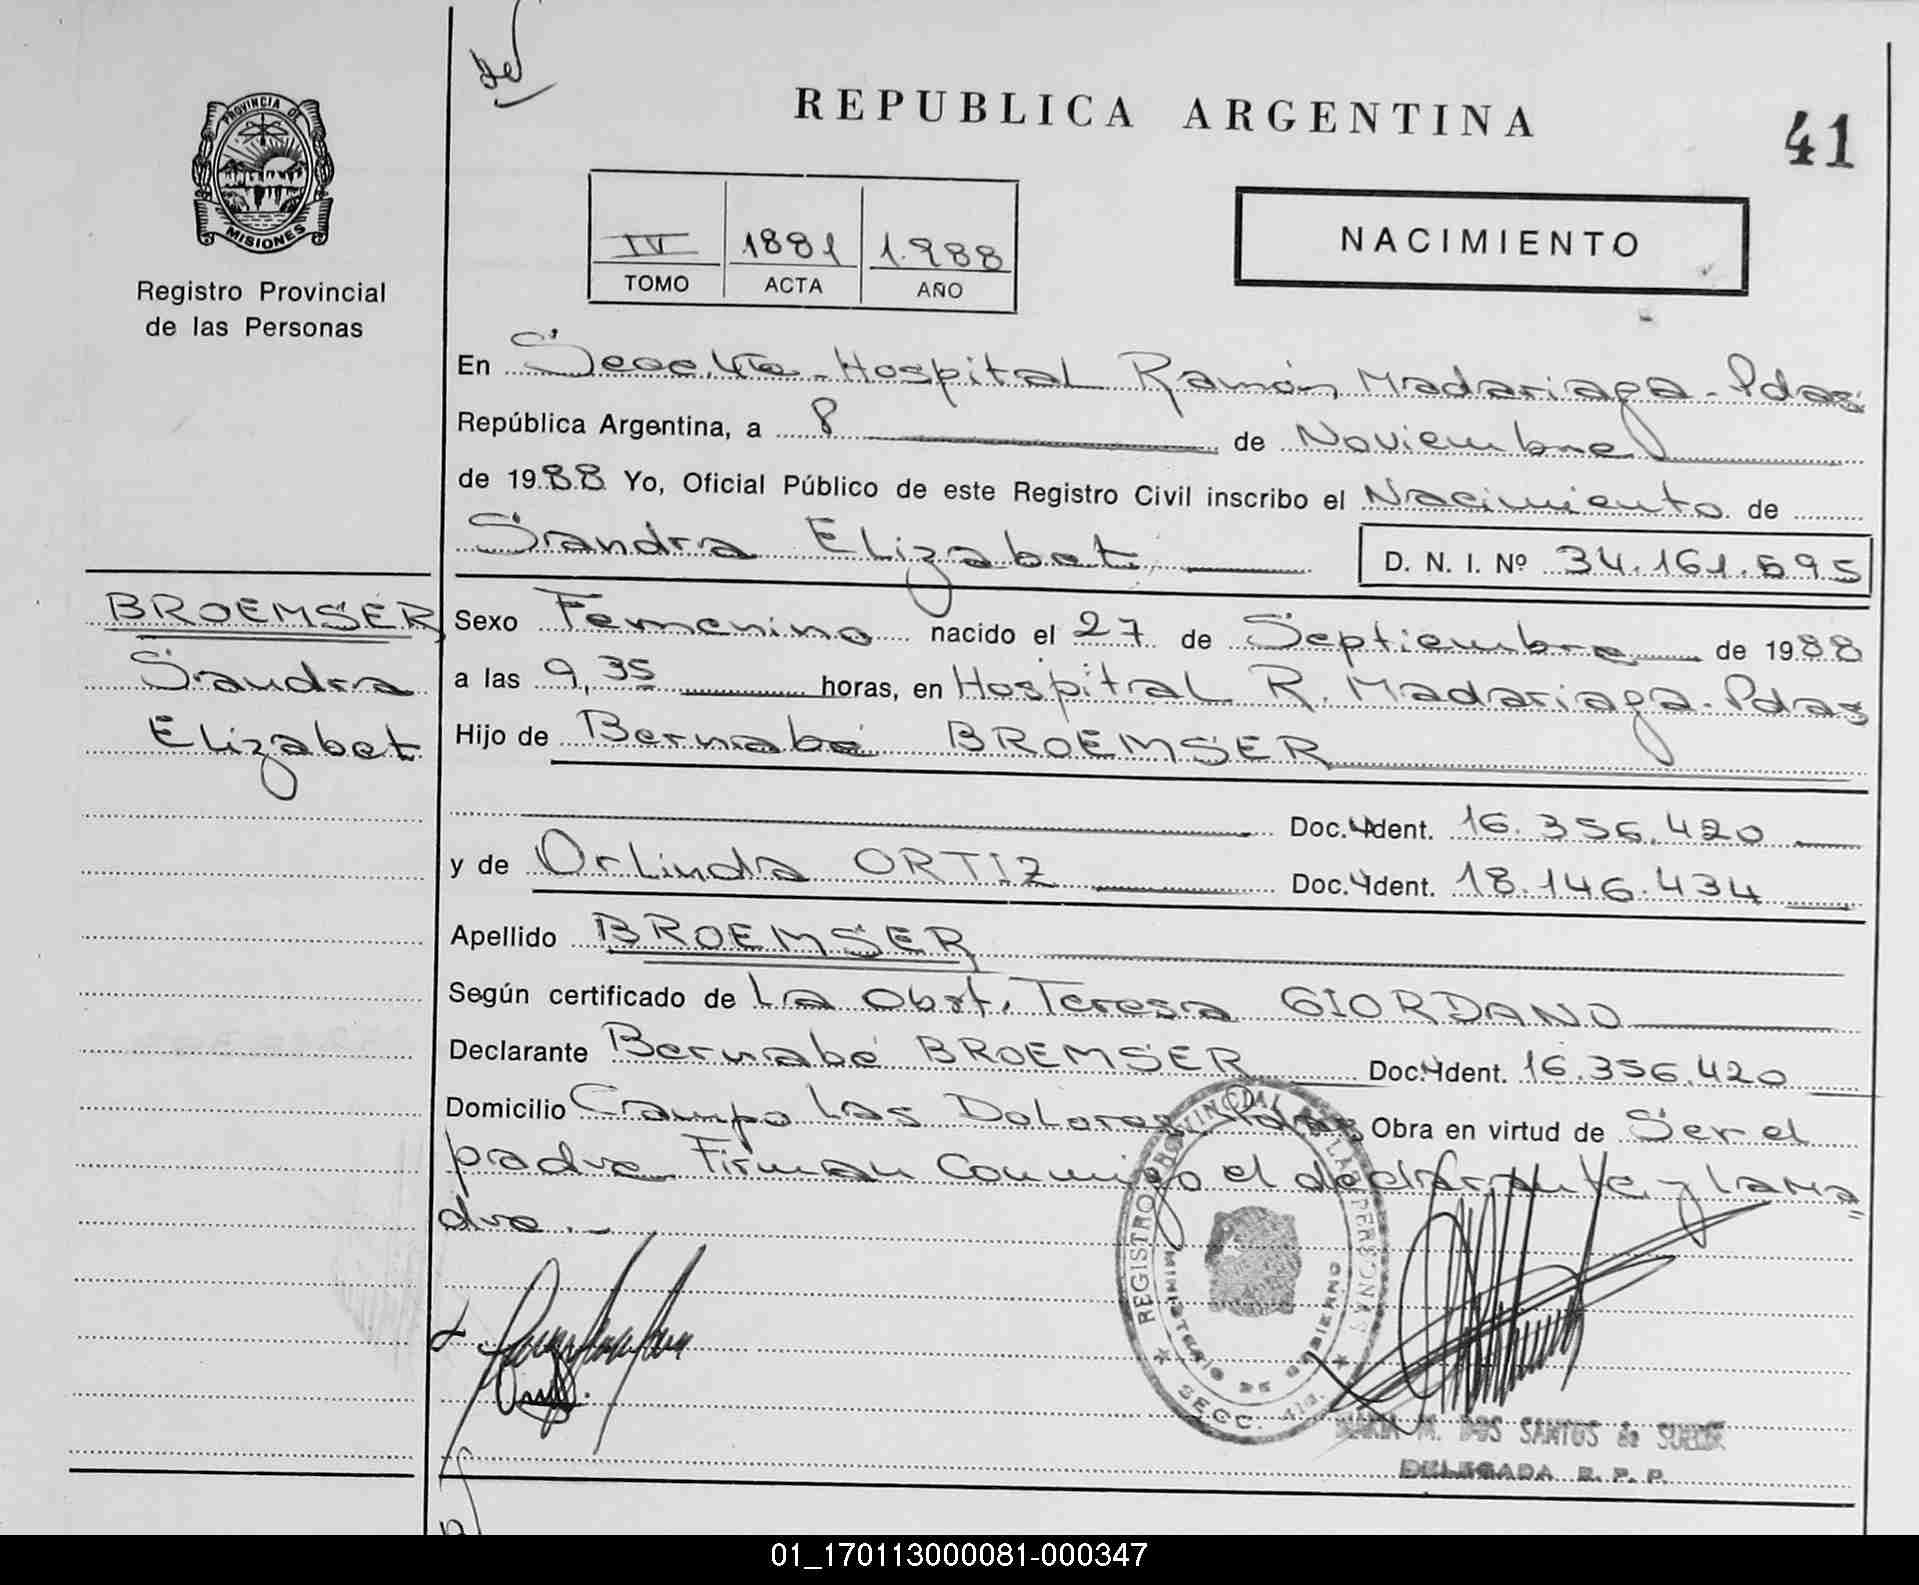 REPUBLICA ARGENTINA
41
PROVINCIA DE
MISIONES
Registro Provincial
de las Personas
IV 1881 1.988
TOMO ACTA AÑO
NACIMIENTO
En Secc. 4ta - Hospital Ramón Madariaga - Pdas
República Argentina, a 8 de Noviembre
de 1988 Yo, Oficial Público de este Registro Civil inscribo el Nacimiento de
Sandra Elizabet
D. N. I. Nº 34.161.695
BROEMSER
Sandra
Elizabet
Sexo Femenino nacido el 27 de Septiembre de 1988
a las 9,35 horas, en Hospital R. Madariaga - Pdas
Hijo de Bernabé BROEMSER
Doc. Ident. 16.356.420
y de Orlinda ORTIZ Doc. Ident. 18.146.434
Apellido BROEMSER
Según certificado de La Obst. Teresa GIORDANO
Declarante Bernabé BROEMSER Doc. Ident. 16.356.420
Domicilio Campo Las Dolores Pdas Obra en virtud de Ser el
padre Firman Conmigo el declarante y la ma"
dre. -
REGISTRO PROVINCIAL DE LAS PERSONAS
MINISTERIO DE GOBIERNO
SECC. 4ta.
MARIA M. DOS SANTOS de
DELEGADA R. P. P.
01_170113000081-000347